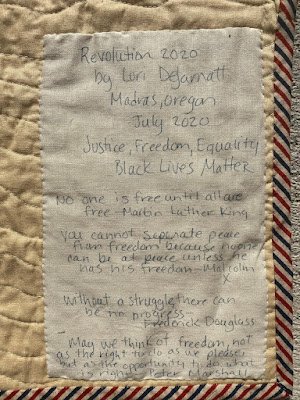 Revolution 2020
by Lori DeJarnatt
Madras, oregon
July 2020
Justice, Freedom, Equality
Black Lives Matter
No one is free until all are
free - Martin Luther King
You cannot seperate peace
from freedom because no one
can be at peace unless he
has his freedom - Malcolm
X
Without a struggle there can
be no progress -
Frederick Douglass
May we think of freedom, not
as the right to do as we please,
but as the opportunity to do what
is right - Peter Marshall